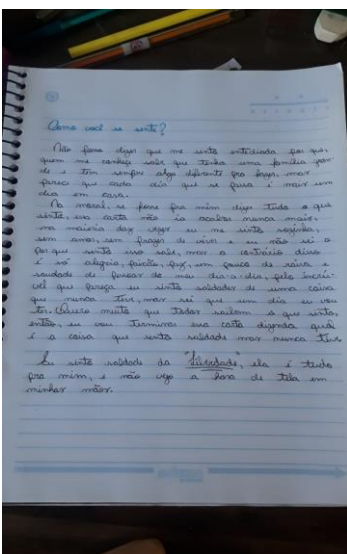 Como você se sente?
Não posso dizer que me sinto entediada por que,
quem me conhece sabe que tenho uma família gran-
de e tem sempre algo diferente pra fazer, mas
parece que cada dia que se passa é mais um
dia em casa.
Na moral, se fosse pra mim dizer tudo o que
sinto, essa carta não ia acabar nunca mais,
na maioria das vezes eu me sinto sozinha,
sem amor, sem prazer de viver e eu não sei o
por que sinto isso sabe, mas ao contrário disso
é só alegria, paixão, paz, um pouco de raiva e
saudade de do meu dia-a-dia, pelo incrí-
vel que pareça eu sinto saudades de uma coisa
que nunca tive, mas sei que um dia eu vou
ter. Quero muito que todos saibam o que sinto,
então, eu vou terminar essa carta dizendo qual
é a coisa que sinto saudade mas nunca tive
Eu sinto saudade da "liberdade", ela é tudo
pra mim, e não vejo a hora de tela em
minhas mãos.